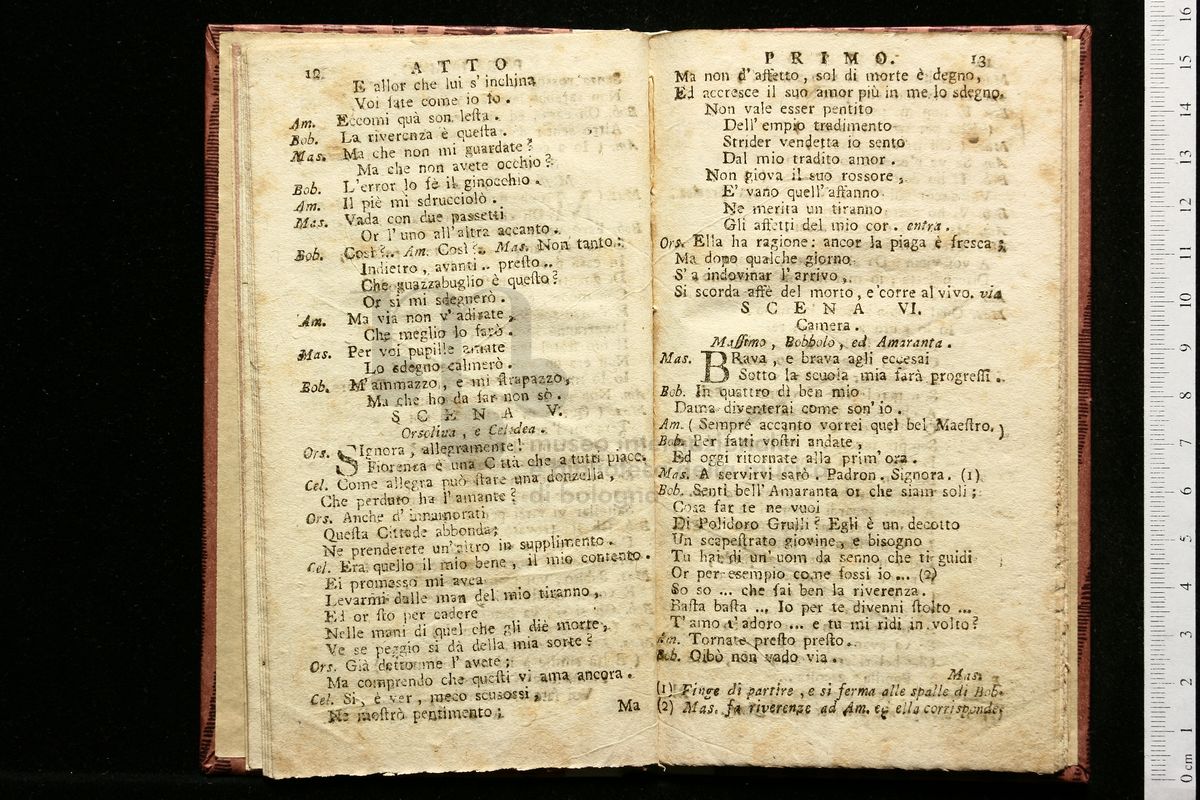 12 ATTO
E allor che lui s'inchina
Voi fate come io fo.
Am. Eccomi quà son lesta.
Bob. La riverenza è questa.
Mas. Ma che non mi guardate?
Ma che non avete occhio?
Bob. L'error lo fè il ginocchio.
Am. Il piè mi sdrucciolò.
Mas. Vada con due passetti
Or l'uno all'altra accanto.
Bob. Così?.. Am. Così?.. Mas. Non tanto:
Indietro, avanti.. presto..
Che guazzabuglio è questo?
Or si mi sdegnerò.
Am. Ma via non v'adirate,
Che meglio lo farò.
Mas. Per voi pupille amate
Lo sdegno calmerò.
Bob. M'ammazzo, e mi strapazzo,
Ma che ho da far non sò.
SCENA V.
Orsolina, e Celidea.
Ors. SIgnora, allegramente!
Fiorenza è una Città che a tutti piace.
Cel. Come allegra può stare una donzella,
Che perduto ha l'amante?
Ors. Anche d'innamorati
Questa Cittade abbonda;
Ne prenderete un'altro in supplimento.
Cel. Era quello il mio bene, il mio contento.
Ei promesso mi avea
Levarmi dalle man del mio tiranno,
Ed or sto per cadere
Nelle mani di quel che gli diè morte,
Ve se peggio si dà della mia sorte?
Ors. Già dettome l'avete;
Ma comprendo che questi vi ama ancora.
Cel. Si, è ver, meco scusossi,
Ne mostrò pentimento;
Ma
PRIMO. 13
Ma non d'affetto, sol di morte è degno,
Ed accresce il suo amor più in me lo sdegno.
Non vale esser pentito
Dell'empio tradimento
Strider vendetta io sento
Dal mio tradito amor.
Non giova il suo rossore,
E' vano quell'affanno
Ne merita un tiranno
Gli affetti del mio cor. entra.
Ors. Ella ha ragione: ancor la piaga è fresca;
Ma dopo qualche giorno
S'a indovinar l'arrivo,
Si scorda affè del morto, e corre al vivo. via
SCENA VI.
Camera.
Massimo, Bobbolo, ed Amaranta.
Mas. BRava, e brava agli eccessi
Sotto la scuola mia farà progressi.
Bob. In quattro dì ben mio
Dama diventerai come son'io.
Am. (Sempre accanto vorrei quel bel Maestro.)
Bob. Per fatti vostri andate,
Ed oggi ritornate alla prim'ora.
Mas. A servirvi sarò. Padron. Signora. (1)
Bob. Senti bell'Amaranta or che siam soli;
Cosa far te ne vuoi
Di Polidoro Grulli? Egli è un decotto
Un scapestrato giovine, e bisogno
Tu hai di un'uom da senno che ti guidi
Or per esempio come fossi io ... (2)
So so ... che fai ben la riverenza.
Basta basta ... Io per te divenni stolto ...
T'amo t'adoro ... e tu mi ridi in volto?
Am. Tornate presto presto.
Bob. Oibò non vado via.
Mas.
(1) Finge di partire, e si ferma alle spalle di Bob.
(2) Mas. fa riverenze ad Am. ed ella corrisponde.